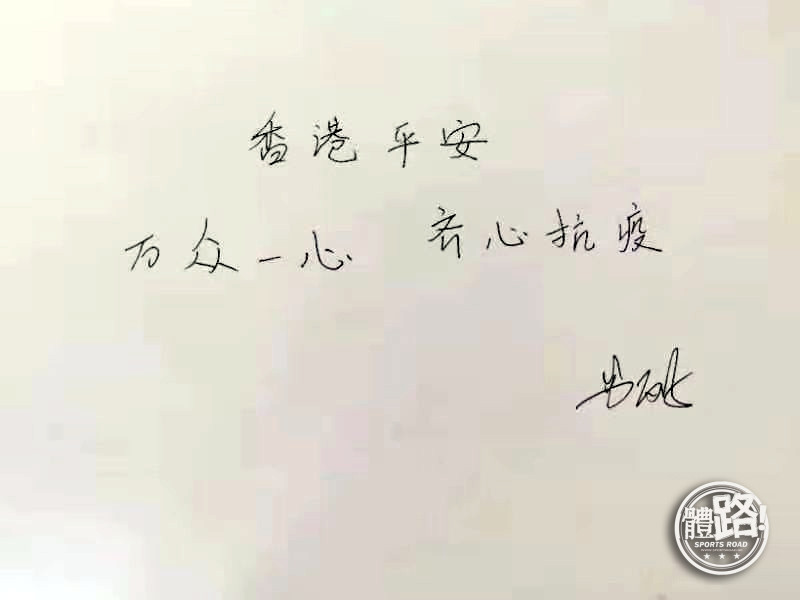 香港平安
万众一心 齐心抗疫
體路!
SPORTS ROAD